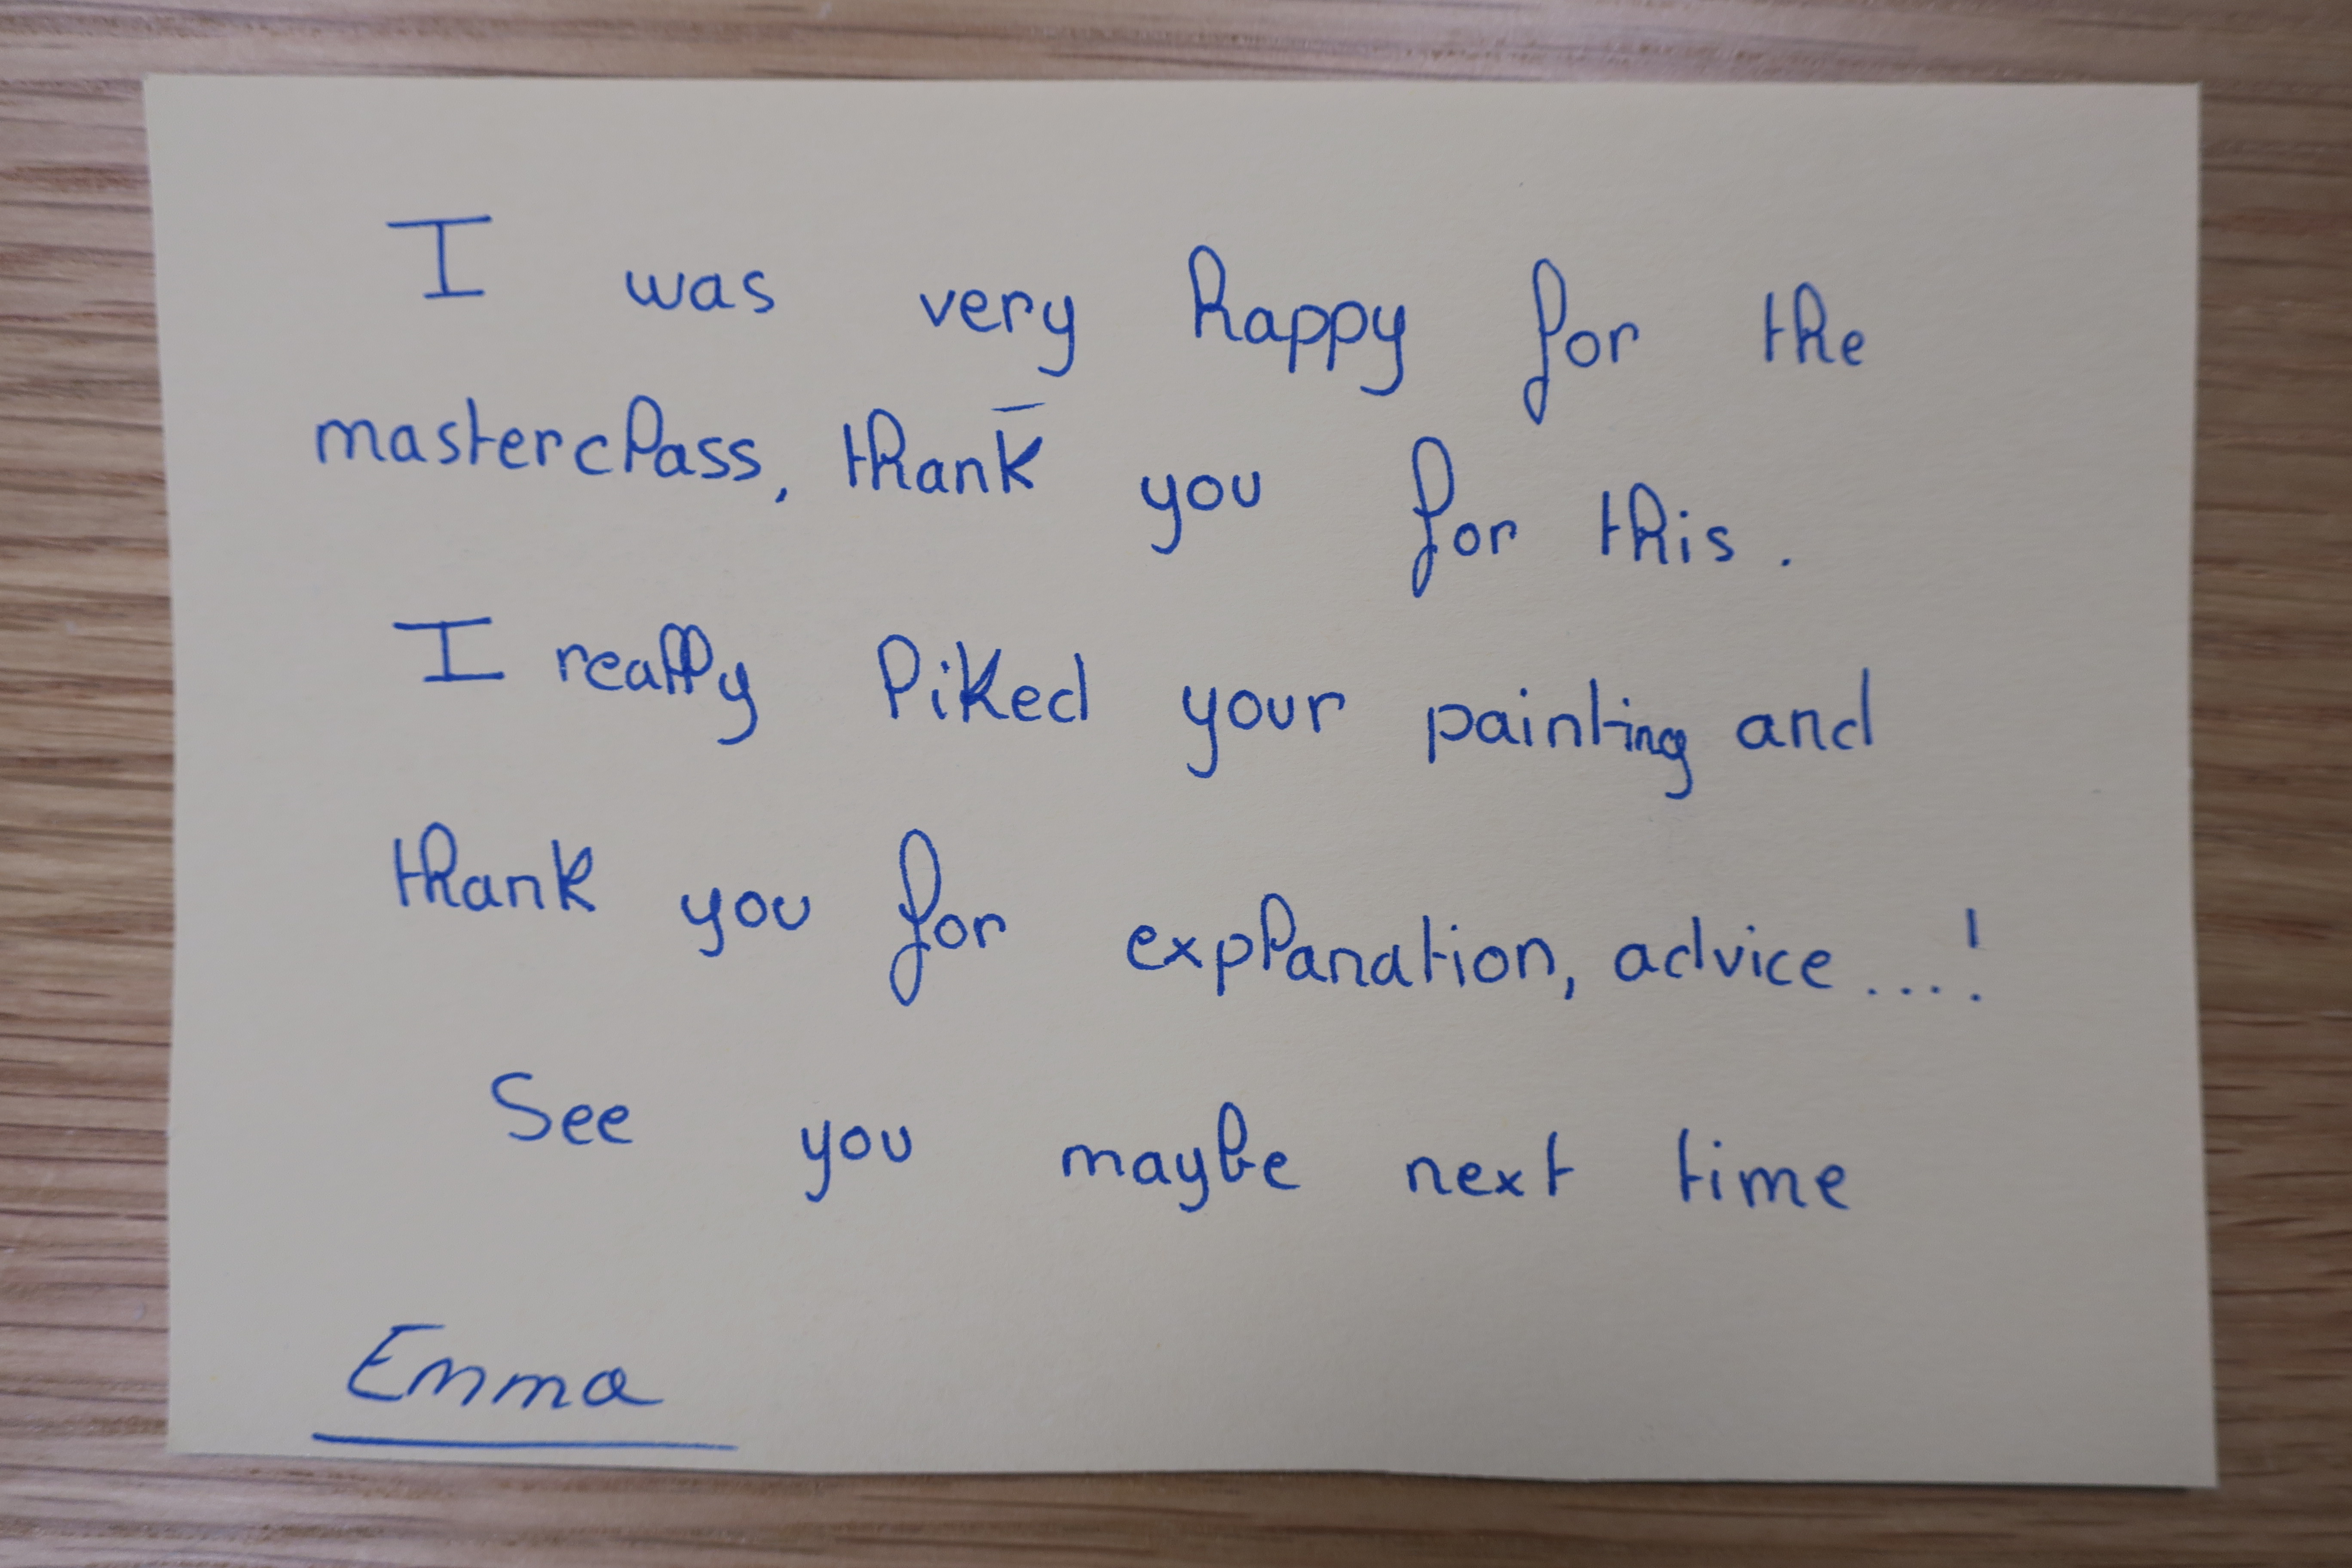 I was very happy for the
masterclass, thank you for this.
I really liked your painting and
thank you for explanation, advice...!
See you maybe next time
Emma